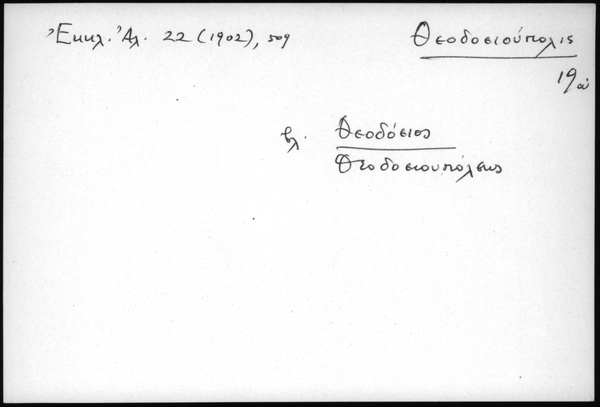 Ἐκκλ. Ἀλ. 22 (1902), 509
Θεοδοσιούπολις
19 αἰ
βλ. Θεοδόσιος
Θεοδοσιουπόλεως